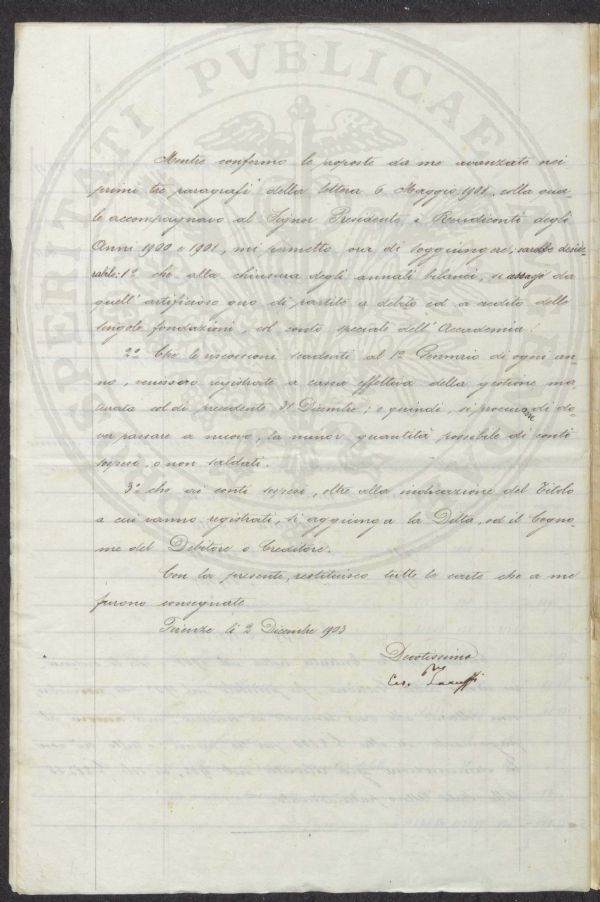 PROSPERITATI PVBLICAE
Mentre confermo le proposte da me avanzate nei
primi tre paragrafi della lettera 6 Maggio 1901, colla qua-
le accompagnavo al Signor Presidente i Rendiconti degli
Anni 1900 e 1901, mi permetto ora di soggiungere; sarebbe deside-
rabile: 1º che alla chiusura degli annuali bilanci, si assegni da
quell'artificioso giro di partite a debito ed a credito delle
singole fondazioni, col conto speciale dell'Accademia.
2º Che le riscossioni scadenti al 1º Gennaio di ogni an-
no, venissero registrate a cassa effettiva della gestione ma-
turata col dì precedente 31 Dicembre; e quindi, si procurasse di do-
ver passare a nuovo, la minor quantità possibile di conti
sospesi, o non saldati.
3º che ai conti sospesi, oltre alla indicazione del Titolo
a cui vanno registrati, si aggiunga la Ditta, ed il Cogno-
me del Debitore o Creditore.
Con la presente, restituisco tutte le carte che a me
furono consegnate
Firenze li 2 Dicembre 1903
Devotissimo